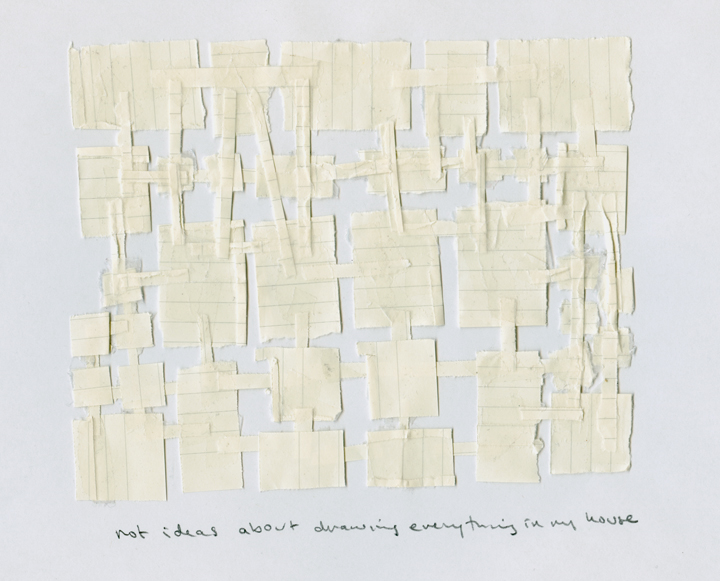 not ideas about drawing everything in my house